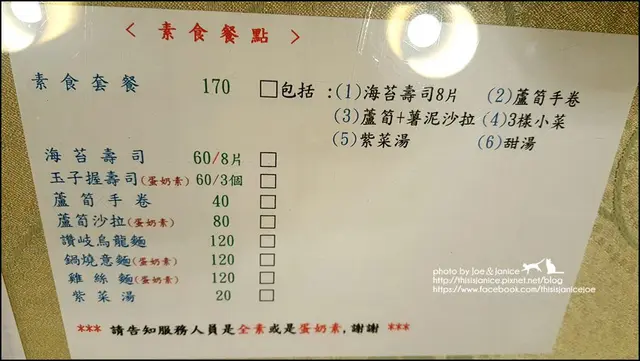 < 素食餐點 >
素食套餐 170 □包括：(1)海苔壽司8片 (2)蘆筍手卷
(3)蘆筍+薯泥沙拉 (4)3樣小菜
(5)紫菜湯 (6)甜湯
海苔壽司 60/8片 □
玉子握壽司(蛋奶素) 60/3個 □
蘆筍手卷 40 □
蘆筍沙拉(蛋奶素) 80 □
讚岐烏龍麵 120 □
鍋燒意麵(蛋奶素) 120 □
雞絲麵(蛋奶素) 120 □
紫菜湯 20 □
*** 請告知服務人員是全素或是蛋奶素,謝謝 ***
photo by Joe & Janice
http://thisisjanice.pixnet.net/blog
https://www.facebook.com/thisisjanicejoe